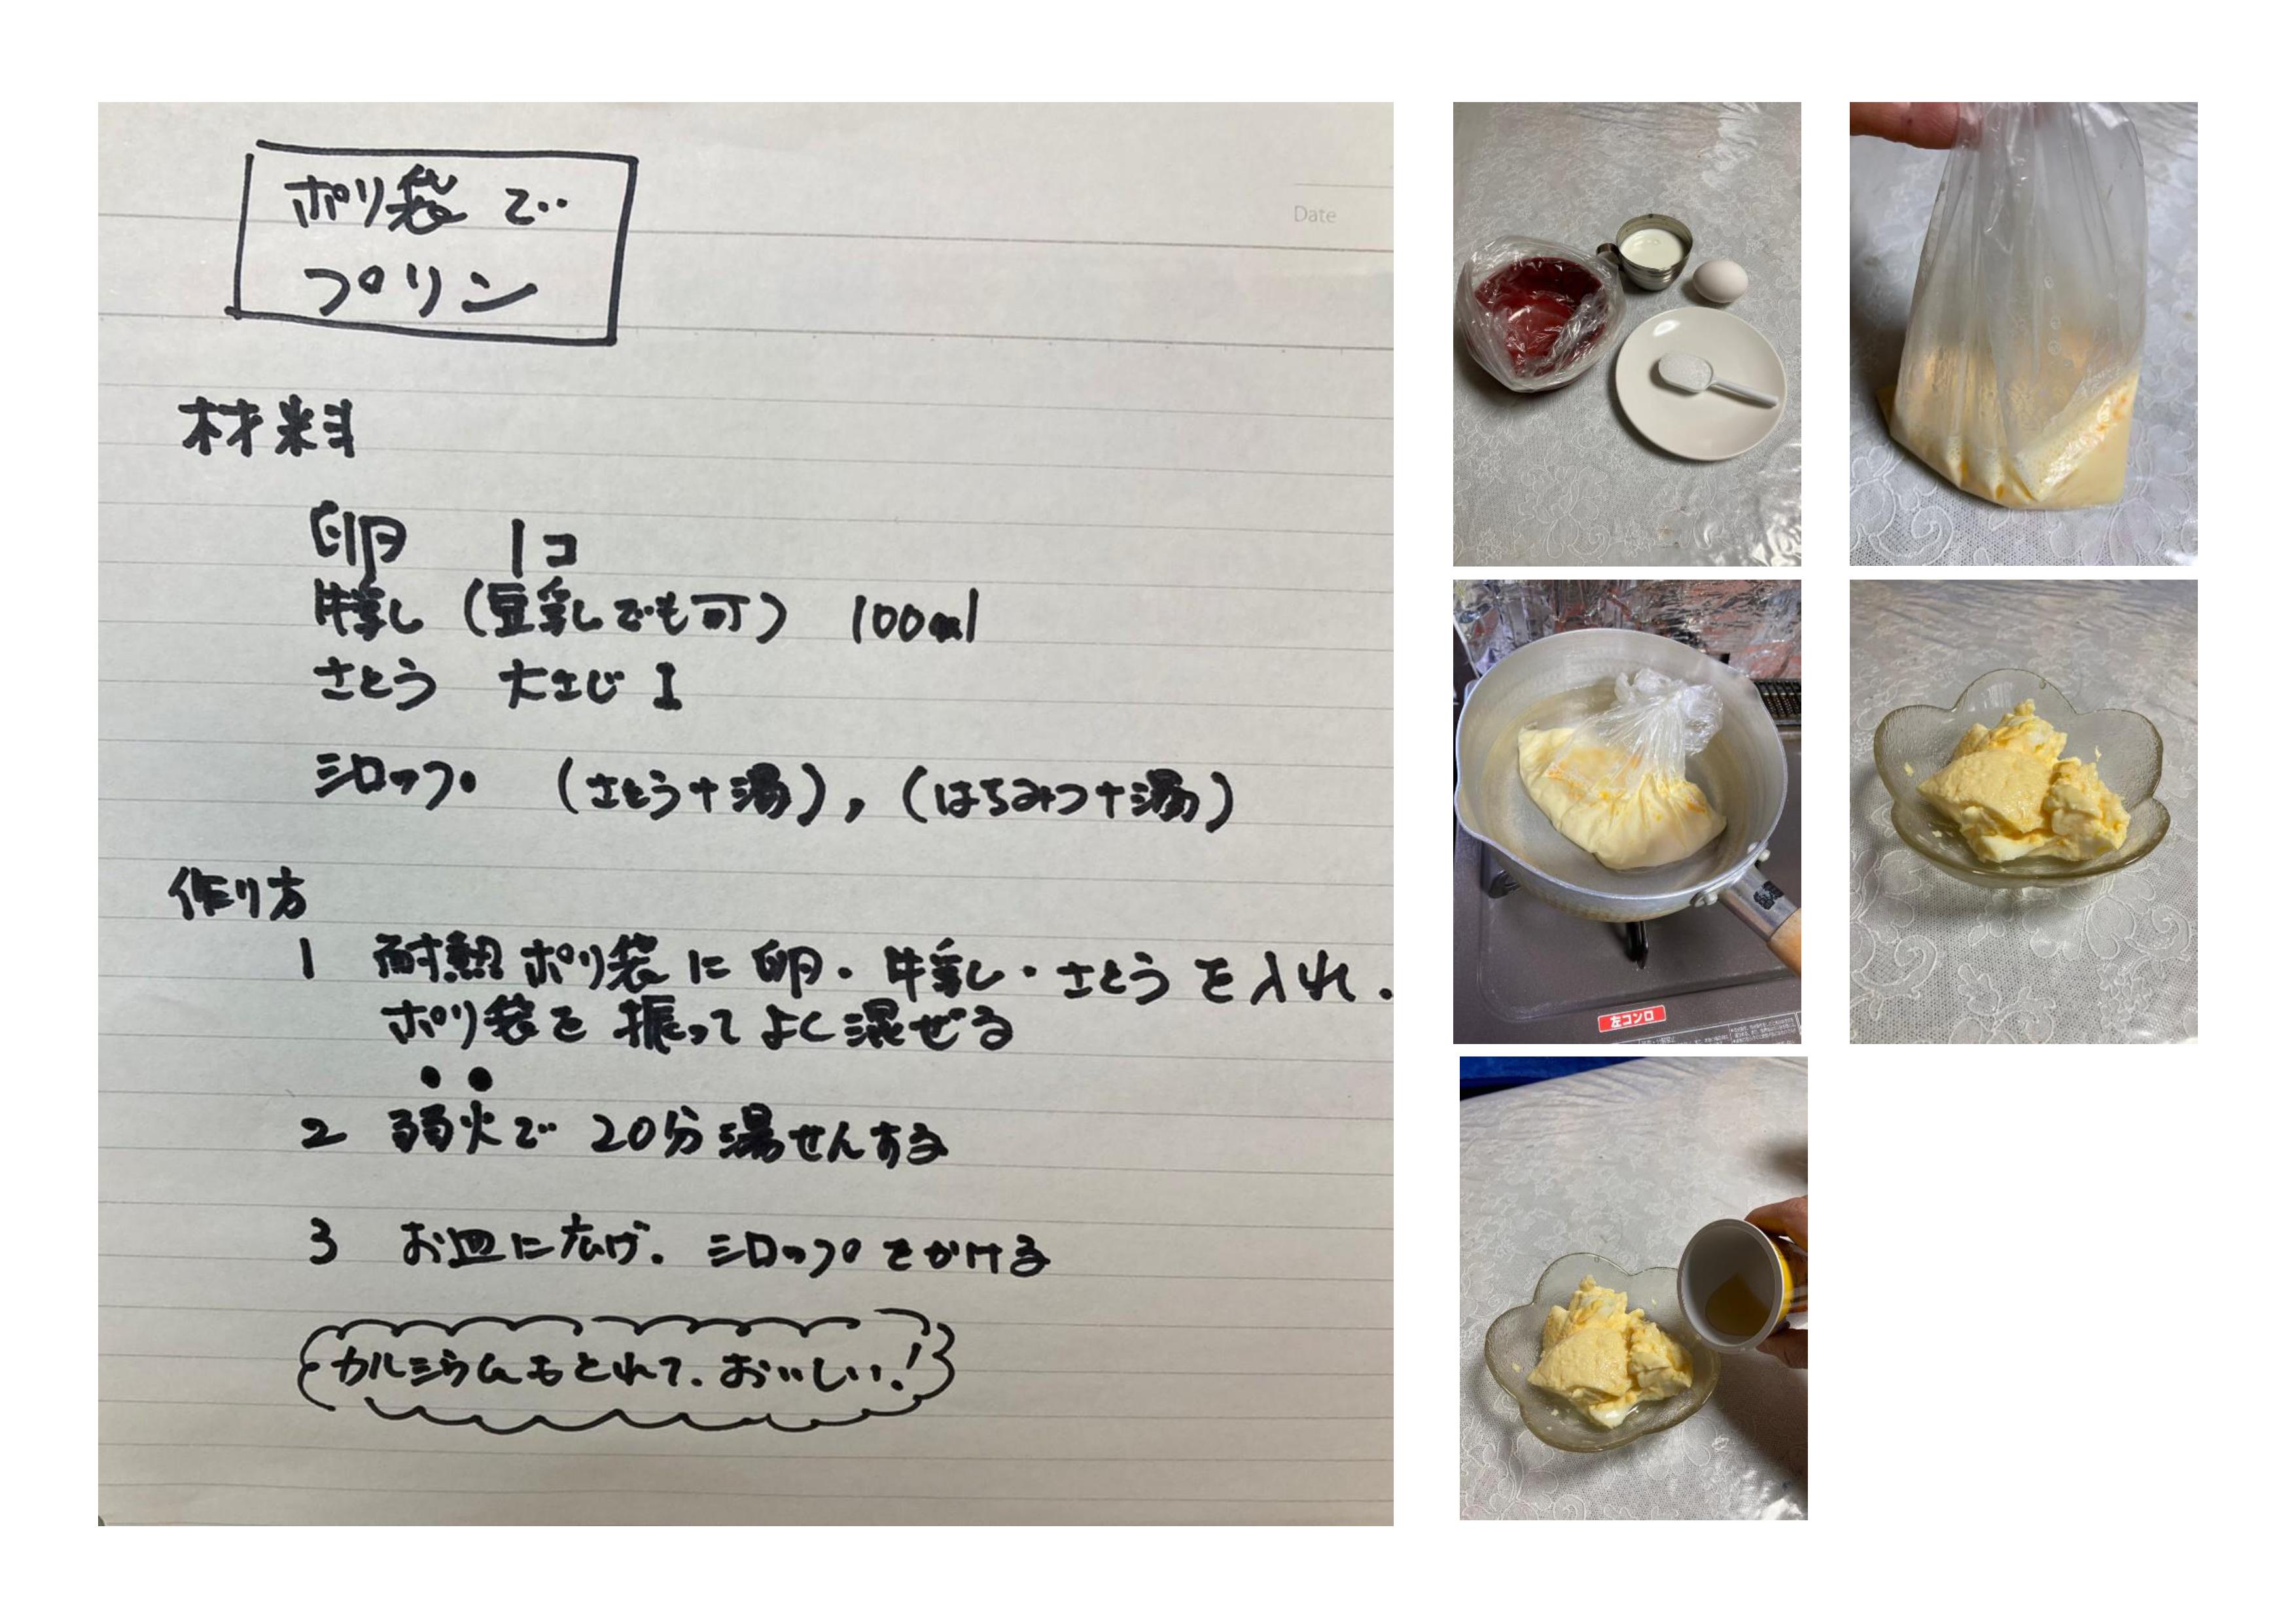 Date
ポリ袋で
プリン
材料
卵 1コ
牛乳（豆乳でも可） 100ml
さとう 大さじ1
シロップ （さとう＋湯），（はちみつ＋湯）
作り方
1 耐熱ポリ袋に卵・牛乳・さとうを入れ．
ポリ袋を振ってよく混ぜる
2 弱火で 20分湯せんする
3 お皿に広げ．シロップをかける
カルシウムもとれて．おいしい！
左コンロ